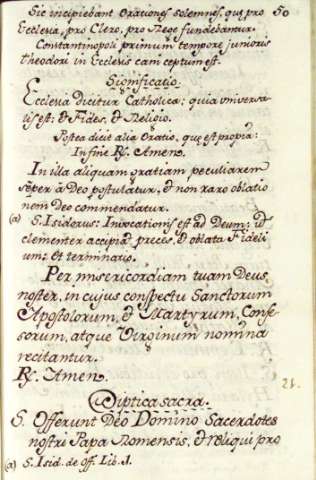 Sic incipiebant Orationes solemnes, quę pro 50
Ecclesia, pro Clero, pro Rege fundebantur.
Constantinopoli primum tempore junioris
Theodori in Ecclesiis cani ceptum est.
Significatio.
Ecclesia dicitur Catholica; quia universa-
lis est: & Fides, & Religio.
Postea dicit alia Oratio, quę est propria:
In fine ℟. Amen.
In illa aliquam gratiam peculiarem
sęper à Deo postulatur, & non raro oblatio-
nem Deo commendatur.
(a) S. Isidorus: Invocationis est ad Deum: ut
clementer accipiat preces, & oblata Fideli-
um: et terminatio.
Per misericordiam tuam Deus
noster, in cujus conspectu Sanctorum
Apostolorum, & Martyrum, Confe-
sorum, atque Virginum nomina
recitantur.
℟. Amen.
21.
Diptica sacra.
S. Offerunt Deo Domino Sacerdotes
nostri Papa Romensis, & reliqui pro
(a) S. Isid. de Off. Lib. 1.